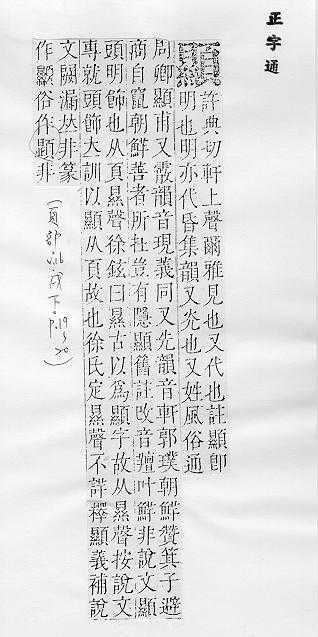 正字通
顯
許典切軒上聲爾雅見也又代也註顯卽
明也明亦代昏集韻又灮也又姓風俗通
周卿顯甫又霰韻音現義同又先韻音軒郭璞朝鮮贊箕子避
商自竄朝鮮善者所在豈有隱顯舊註改音羶叶鮮非說文顯
頭明飾也从頁㬎聲徐鉉曰㬎古以爲顯字故从㬎聲按說文
專就頭飾大訓以顯从頁故也徐氏定㬎聲不詳釋顯義補說
文闕漏𠀤非篆
作顯俗作顕非
(頁部 戌下 p.19~20)